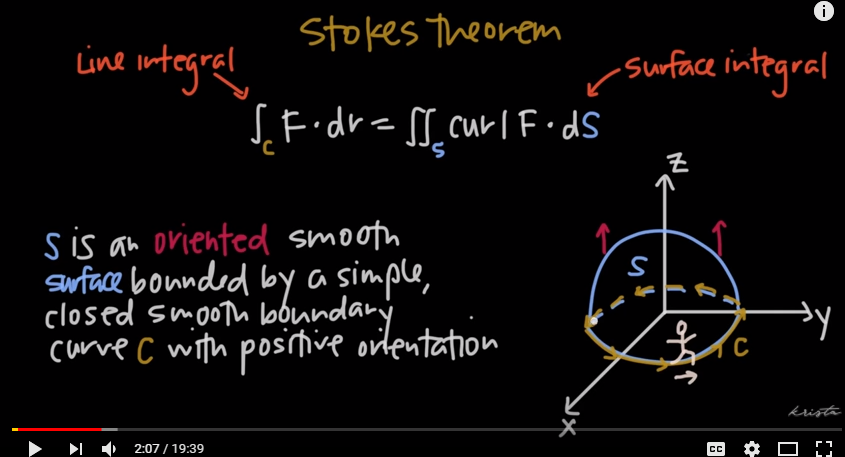 Stokes Theorem
Line integral
surface integral
∫_C F · dr = ∬_S curl F · dS
S is an oriented smooth
surface bounded by a simple,
closed smooth boundary
curve C with positive orientation
z
S
y
C
x
krista
2:07 / 19:39
CC
i